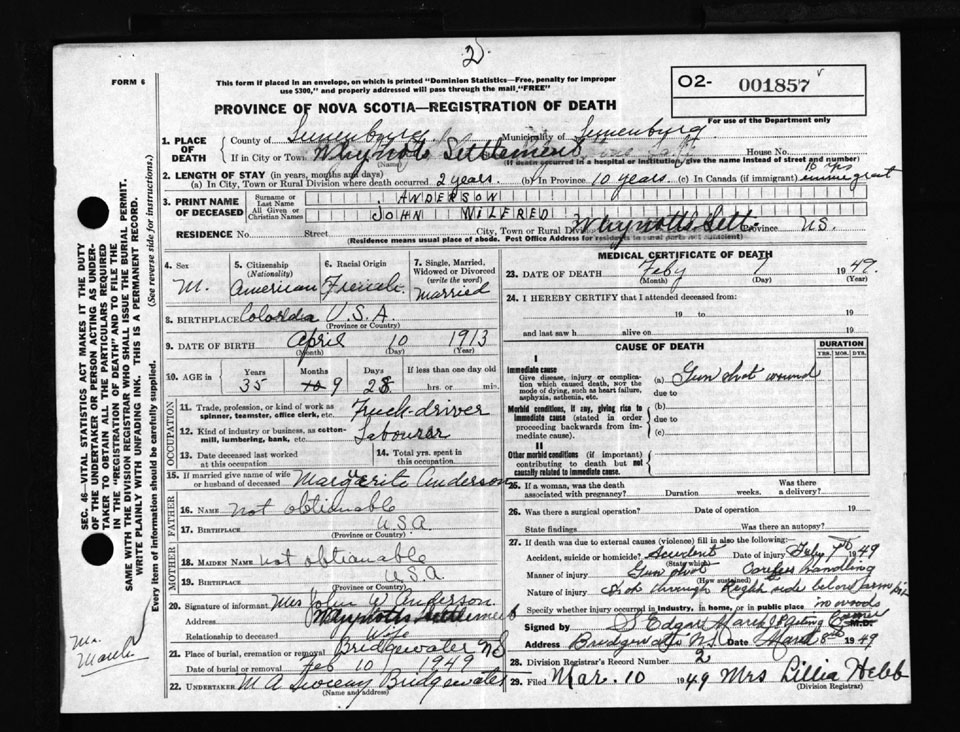 2
FORM 6
This form if placed in an envelope, on which is printed "Dominion Statistics—Free, penalty for improper
use $300," and properly addressed will pass through the mail "FREE"
O2- 001857
For use of the Department only
PROVINCE OF NOVA SCOTIA—REGISTRATION OF DEATH
1. PLACE OF DEATH
County of Lunenburg Municipality of Lunenburg
If in City or Town Whynots Settlement House No.
(Name) (If death occurred in a hospital or institution, give the name instead of street and number)
2. LENGTH OF STAY (in years, months and days)
(a) In City, Town or Rural Division where death occurred 2 years. (b) In Province 10 years. (c) In Canada (if immigrant) 10 yrs immegrant
3. PRINT NAME OF DECEASED
Surname or Last Name ANDERSON
All Given or Christian Names JOHN WILFRED
RESIDENCE No. Street City, Town or Rural Div. Whynotts Sett. Province US.
(Residence means usual place of abode. Post Office Address for residents in rural parts not sufficient)
4. Sex M.
5. Citizenship (Nationality) American
6. Racial Origin French
7. Single, Married, Widowed or Divorced (write the word) Married
8. BIRTHPLACE U.S.A.
(Province or Country)
9. DATE OF BIRTH April 10 1913
(Month) (Day) (Year)
10. AGE in Years Months Days If less than one day old
35 10 9 28 hrs. or min.
OCCUPATION
11. Trade, profession, or kind of work as spinner, teamster, office clerk, etc. Truck-driver
12. Kind of industry or business, as cotton-mill, lumbering, bank, etc. Labourer
13. Date deceased last worked at this occupation
14. Total yrs. spent in this occupation
15. If married give name of wife or husband of deceased Margarite Anderson
FATHER
16. Name Not obtianable
17. Birthplace U.S.A.
(Province or Country)
MOTHER
18. Maiden Name Not obtianable
19. Birthplace U.S.A.
(Province or Country)
20. Signature of informant Mrs John W. Anderson
Address Whynotts Settlement
Relationship to deceased Wife
21. Place of burial, cremation or removal Bridgewater NS
Date of burial or removal Feb 10 1949
22. UNDERTAKER M A Bridgewater
(Name and address)
MEDICAL CERTIFICATE OF DEATH
23. DATE OF DEATH Feby 7 1949.
(Month) (Day) (Year)
24. I HEREBY CERTIFY that I attended deceased from:
19 to 19
and last saw h alive on 19
CAUSE OF DEATH
DURATION
YRS. MOS. DYS.
I
Immediate cause
Give disease, injury or complication which caused death, NOT the mode of dying, such as heart failure, asphyxia, asthenia, etc.
(a) Gun shot wound
due to
Morbid conditions, if any, giving rise to immediate cause (stated in order proceeding backwards from immediate cause).
(b)
due to
(c)
II
Other morbid conditions (if important) contributing to death but not causally related to immediate cause.
25. If a woman, was the death associated with pregnancy? Duration weeks. Was there a delivery?
26. Was there a surgical operation? Date of operation 19
State findings Was there an autopsy?
27. If death was due to external causes (violence) fill in also the following:
Accident, suicide or homicide? Accident Date of injury Feby 7th 1949
(State which)
Manner of injury Gun shot handling
(How sustained)
Nature of injury Shot through Right side below arm pit
Specify whether injury occurred in industry, in home, or in public place in woods
Signed by S Edgar March Acting M.D.
Address Bridgewater N.S. Date March 8th 1949
28. Division Registrar's Record Number 2
29. Filed Mar. 10 1949 Mrs Lillia Hebb
(Division Registrar)
SEC. 46—VITAL STATISTICS ACT MAKES IT THE DUTY
OF THE UNDERTAKER OR PERSON ACTING AS UNDERTAKER TO OBTAIN ALL THE PARTICULARS REQUIRED
IN THE "REGISTRATION OF DEATH" AND TO FILE THE
SAME WITH THE DIVISION REGISTRAR WHO SHALL ISSUE THE BURIAL PERMIT.
WRITE PLAINLY WITH UNFADING INK. THIS IS A PERMANENT RECORD.
Every item of information should be carefully supplied. (See reverse side for instructions.)